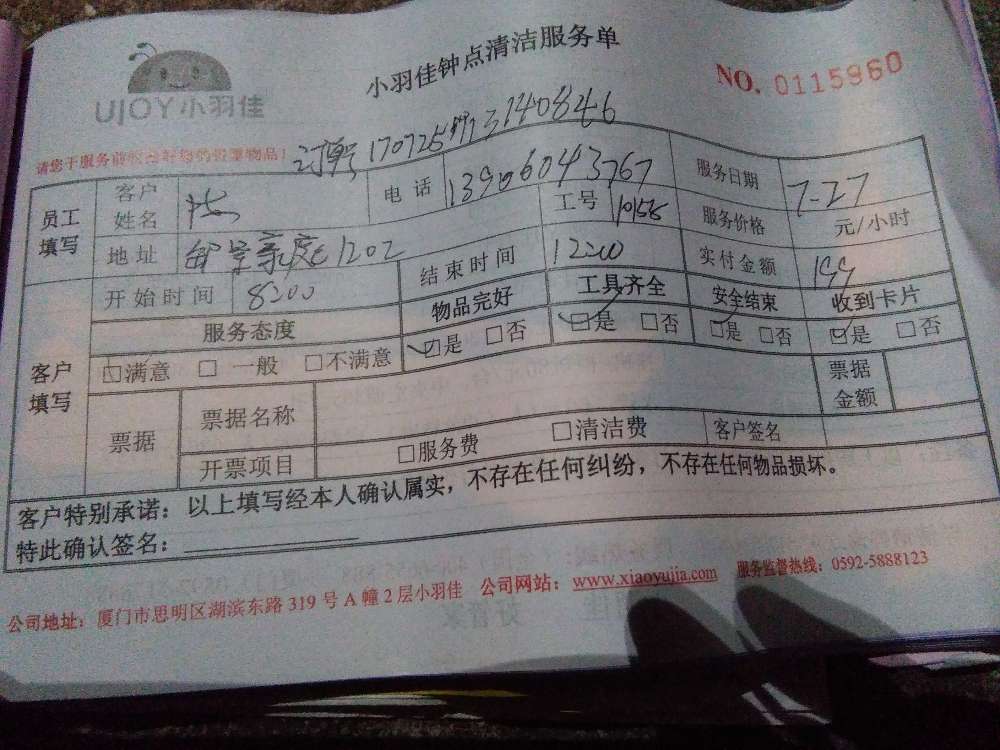 小羽佳钟点清洁服务单
NO. 0115960
UJOY小羽佳
请您于服务前收合好您的贵重物品!
170725 3140846
员工填写 客户姓名 电话 13906043767 服务日期 7-27
地址 1202 工号 服务价格 元/小时
客户填写 开始时间 8:00 结束时间 12:00 实付金额 199
服务态度 物品完好 工具齐全 安全结束 收到卡片
□满意 □一般 □不满意 □是 □否 □是 □否 □是 □否 □是 □否
票据 票据名称 票据金额
开票项目 □服务费 □清洁费 客户签名
客户特别承诺：以上填写经本人确认属实，不存在任何纠纷，不存在任何物品损坏。
特此确认签名：
公司地址：厦门市思明区湖滨东路 319 号 A 幢 2 层小羽佳 公司网站：www.xiaoyujia.com 服务监督热线：0592-5888123